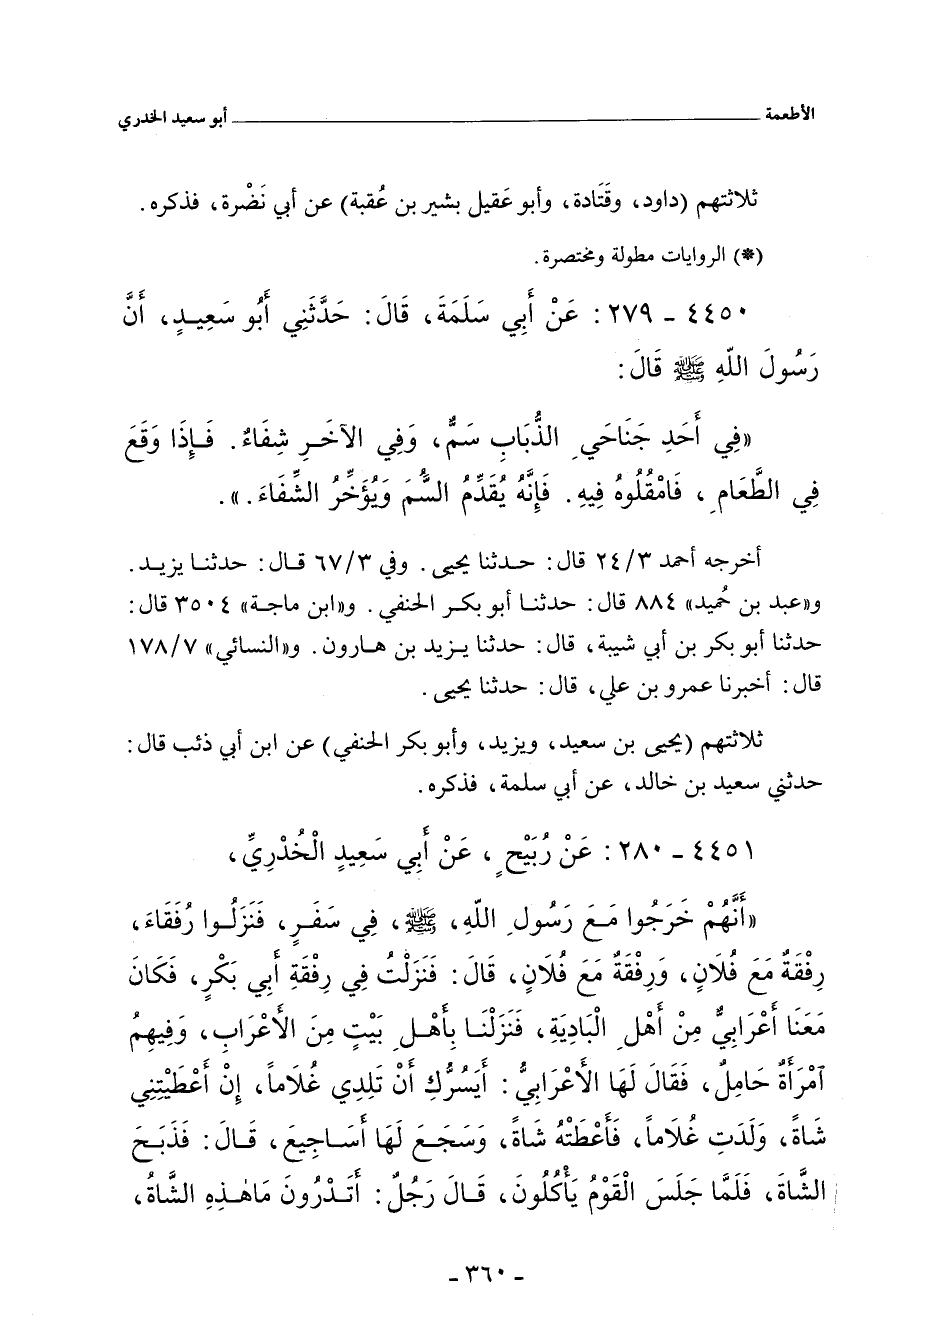 الأطعمة ــــــــــــــــــــ أبو سعيد الخدري
ثلاثتهم (داود، وقَتَادة، وأبو عَقيل بشير بن عُقبة) عن أبي نَضْرة، فذكره.
(*) الروايات مطولة ومختصرة.
٤٤٥٠ - ٢٧٩: عَنْ أَبِي سَلَمَةَ، قَالَ: حَدَّثَنِي أَبُو سَعِيدٍ، أَنَّ
رَسُولَ اللَّهِ ﷺ قَالَ:
«فِي أَحَدِ جَنَاحَيِ الذُّبَابِ سَمٌّ، وَفِي الآخَرِ شِفَاءٌ. فَإِذَا وَقَعَ
فِي الطَّعَامِ، فَامْقُلُوهُ فِيهِ. فَإِنَّهُ يُقَدِّمُ السُّمَّ وَيُؤَخِّرُ الشِّفَاءَ.».
أخرجه أحمد ٢٤/٣ قال: حدثنا يحيى. وفي ٦٧/٣ قال: حدثنا يزيد.
و«عبد بن حُميد» ٨٨٤ قال: حدثنا أبو بكر الحنفي. و«ابن ماجة» ٣٥٠٤ قال:
حدثنا أبو بكر بن أبي شيبة، قال: حدثنا يزيد بن هارون. و«النسائي» ١٧٨/٧
قال: أخبرنا عمرو بن علي، قال: حدثنا يحيى.
ثلاثتهم (يحيى بن سعيد، ويزيد، وأبو بكر الحنفي) عن ابن أبي ذئب قال:
حدثني سعيد بن خالد، عن أبي سلمة، فذكره.
٤٤٥١ - ٢٨٠: عَنْ رُبَيْحٍ، عَنْ أَبِي سَعِيدٍ الْخُدْرِيِّ،
«أَنَّهُمْ خَرَجُوا مَعَ رَسُولِ اللَّهِ، ﷺ، فِي سَفَرٍ، فَنَزَلُوا رُفَقَاءَ،
رِفْقَةٌ مَعَ فُلَانٍ، وَرِفْقَةٌ مَعَ فُلَانٍ، قَالَ: فَنَزَلْتُ فِي رِفْقَةِ أَبِي بَكْرٍ، فَكَانَ
مَعَنَا أَعْرَابِيٌّ مِنْ أَهْلِ الْبَادِيَةِ، فَنَزَلْنَا بِأَهْلِ بَيْتٍ مِنَ الأَعْرَابِ، وَفِيهِمُ
آمْرَأَةٌ حَامِلٌ، فَقَالَ لَهَا الأَعْرَابِيُّ: أَيَسُرُّكِ أَنْ تَلِدِي غُلَاماً، إِنْ أَعْطَيْتِنِي
شَاةً، وَلَدَتِ غُلَاماً، فَأَعْطَتْهُ شَاةً، وَسَجَعَ لَهَا أَسَاجِيعَ، قَالَ: فَذَبَحَ
الشَّاةَ، فَلَمَّا جَلَسَ الْقَوْمُ يَأْكُلُونَ، قَالَ رَجُلٌ: أَتَدْرُونَ مَا هَذِهِ الشَّاةُ،
- ٣٦٠ -